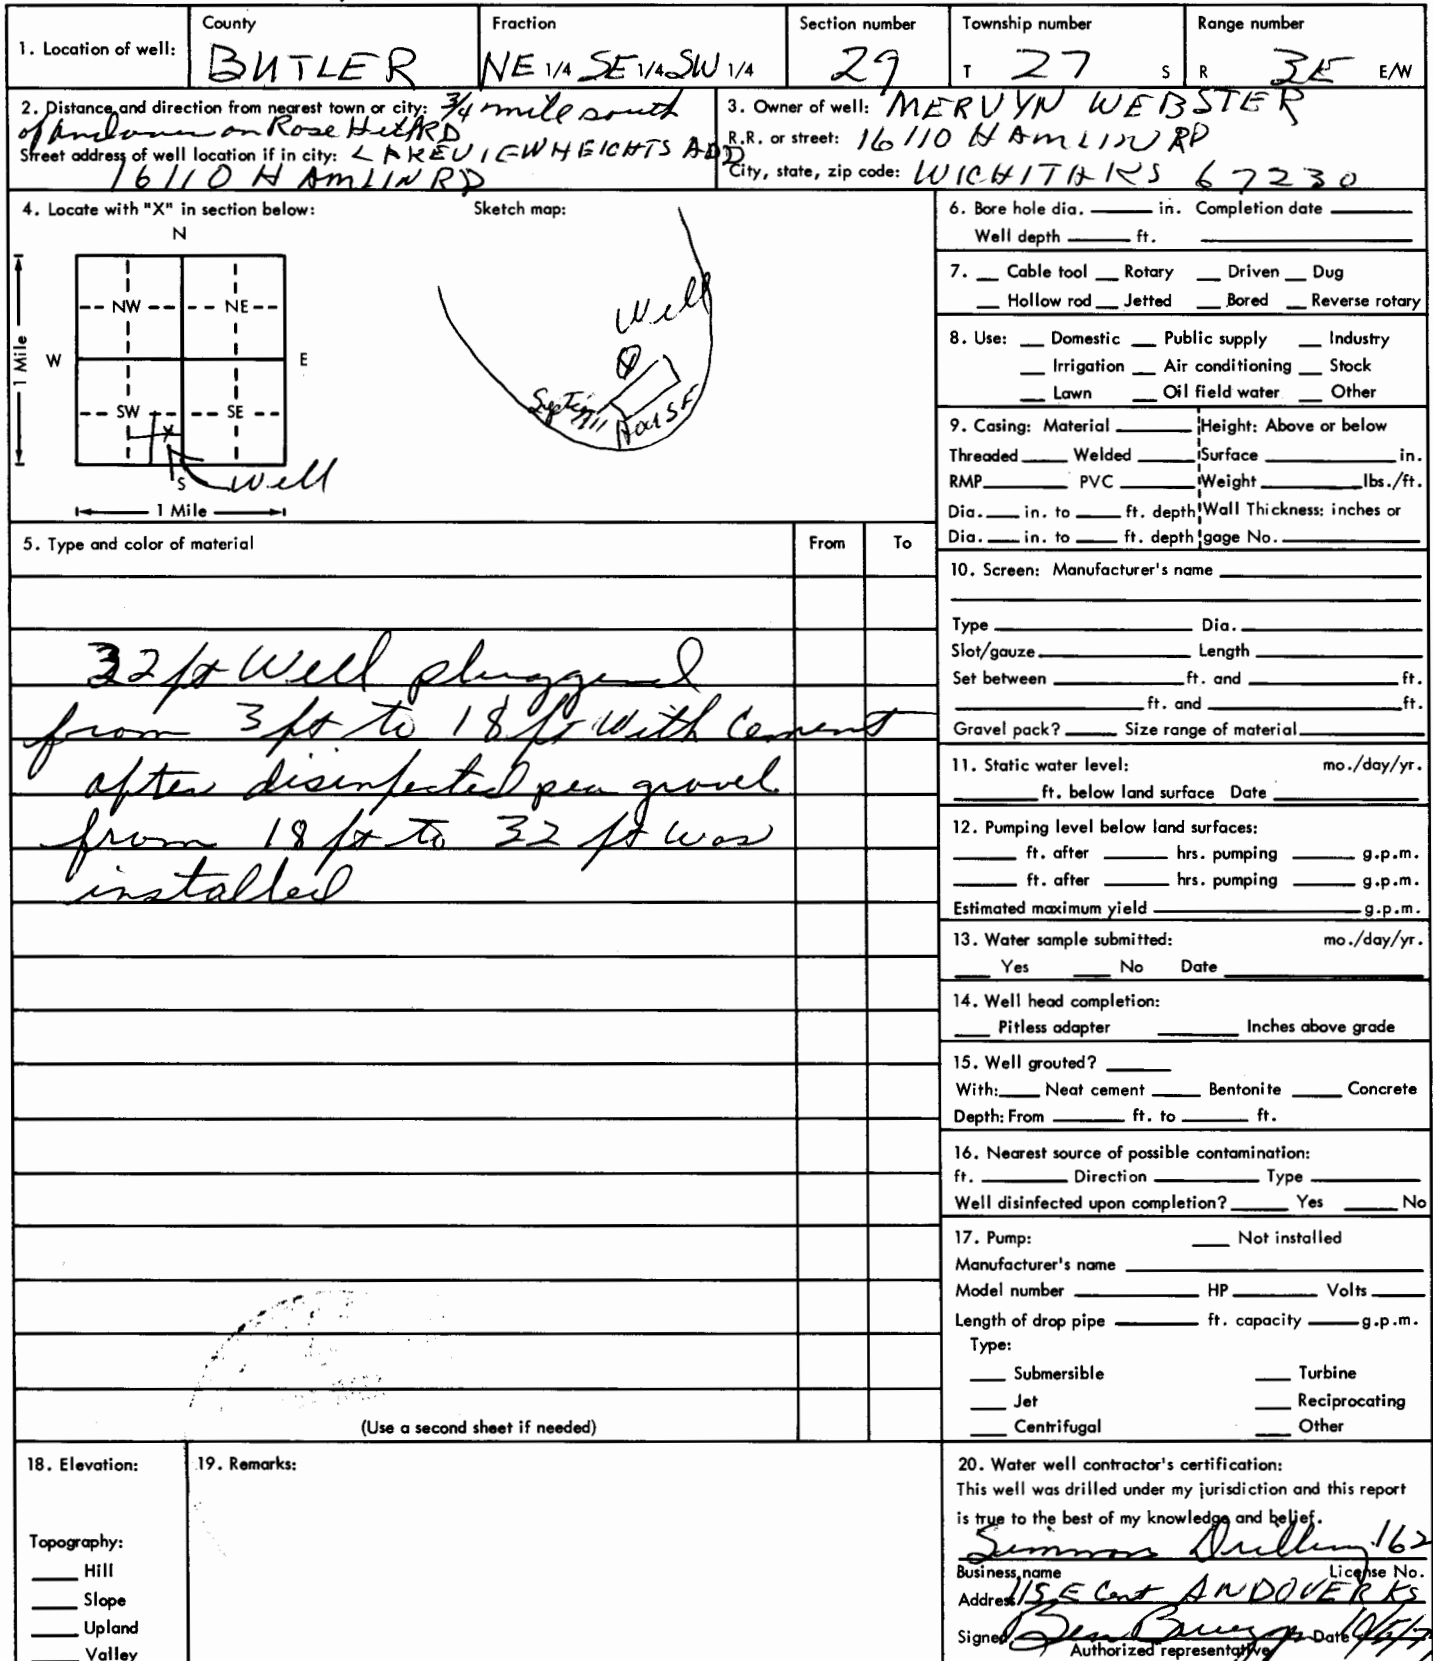 1. Location of well:
County
BUTLER
Fraction
NE 1/4 SE 1/4 SW 1/4
Section number
29
Township number
T 27 S
Range number
R 3E E/W
2. Distance and direction from nearest town or city: 3/4 mile south
of Andover on Rose Hill RD
Street address of well location if in city: LAKEVIEW HEIGHTS ADD
16110 HAMLIN RD
3. Owner of well: MERVYN WEBSTER
R.R. or street: 16110 HAMLIN RD
City, state, zip code: WICHITA KS 67230
4. Locate with "X" in section below:
Sketch map:
N
NW NE
W E
1 Mile
SW SE
X
S
Well
1 Mile
Well
Septic
House
5. Type and color of material
From To
32 ft Well pluggend
from 3 ft to 18 ft With Cement
after disinfected pea gravel
from 18 ft to 32 ft was
installed
(Use a second sheet if needed)
6. Bore hole dia. ____ in. Completion date ____
Well depth ____ ft. ____
7. __ Cable tool __ Rotary __ Driven __ Dug
__ Hollow rod __ Jetted __ Bored __ Reverse rotary
8. Use: __ Domestic __ Public supply __ Industry
__ Irrigation __ Air conditioning __ Stock
__ Lawn __ Oil field water __ Other
9. Casing: Material ____ Height: Above or below
Threaded ____ Welded ____ Surface ____ in.
RMP ____ PVC ____ Weight ____ lbs./ft.
Dia. ____ in. to ____ ft. depth Wall Thickness: inches or
Dia. ____ in. to ____ ft. depth gage No. ____
10. Screen: Manufacturer's name ____
Type ____ Dia. ____
Slot/gauze ____ Length ____
Set between ____ ft. and ____ ft.
____ ft. and ____ ft.
Gravel pack? ____ Size range of material ____
11. Static water level: mo./day/yr.
____ ft. below land surface Date ____
12. Pumping level below land surfaces:
____ ft. after ____ hrs. pumping ____ g.p.m.
____ ft. after ____ hrs. pumping ____ g.p.m.
Estimated maximum yield ____ g.p.m.
13. Water sample submitted: mo./day/yr.
____ Yes ____ No Date ____
14. Well head completion:
____ Pitless adapter ____ Inches above grade
15. Well grouted? ____
With: ____ Neat cement ____ Bentonite ____ Concrete
Depth: From ____ ft. to ____ ft.
16. Nearest source of possible contamination:
ft. ____ Direction ____ Type ____
Well disinfected upon completion? ____ Yes ____ No
17. Pump: ____ Not installed
Manufacturer's name ____
Model number ____ HP ____ Volts ____
Length of drop pipe ____ ft. capacity ____ g.p.m.
Type:
____ Submersible ____ Turbine
____ Jet ____ Reciprocating
____ Centrifugal ____ Other
18. Elevation:
Topography:
____ Hill
____ Slope
____ Upland
____ Valley
19. Remarks:
20. Water well contractor's certification:
This well was drilled under my jurisdiction and this report
is true to the best of my knowledge and belief.
Simmons Drilling 162
Business name License No.
Address 115 E Cent ANDOVER KS
Signed Ben Date
Authorized representative